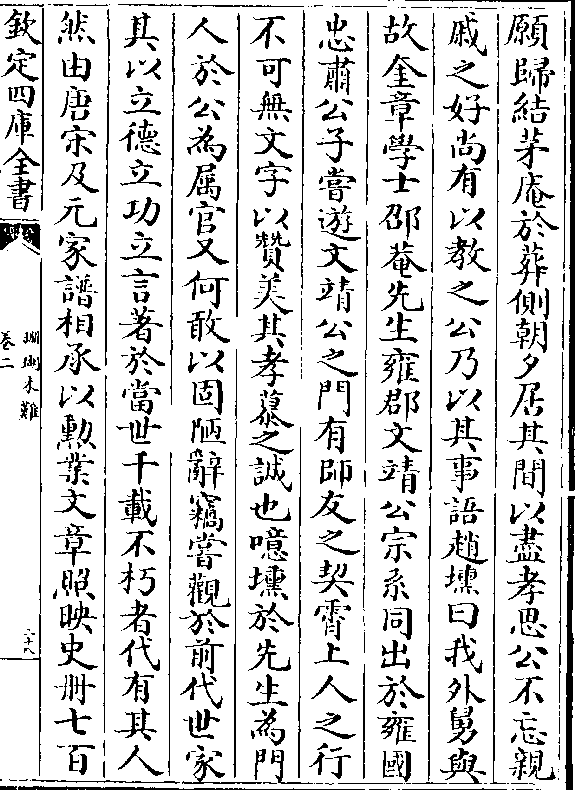 願歸結茅庵於葬側朝夕居其間以盡孝思公不忘親
戚之好尚有以教之公乃以其事語趙壎曰我外舅與
故奎章學士邵菴先生雍郡文靖公宗系同出於雍國
忠肅公子嘗遊文靖公之門有師友之契霄上人之行
不可無文字以贊美其孝慕之誠也噫壎於先生為門
人於公為属官又何敢以固陋辭竊嘗觀於前代世家
其以立德立功立言著於當世千載不朽者代有其人
然由唐宋及元家譜相承以勲業文章照映史册七百
欽定四庫全書
珊瑚木難
卷二
二十八